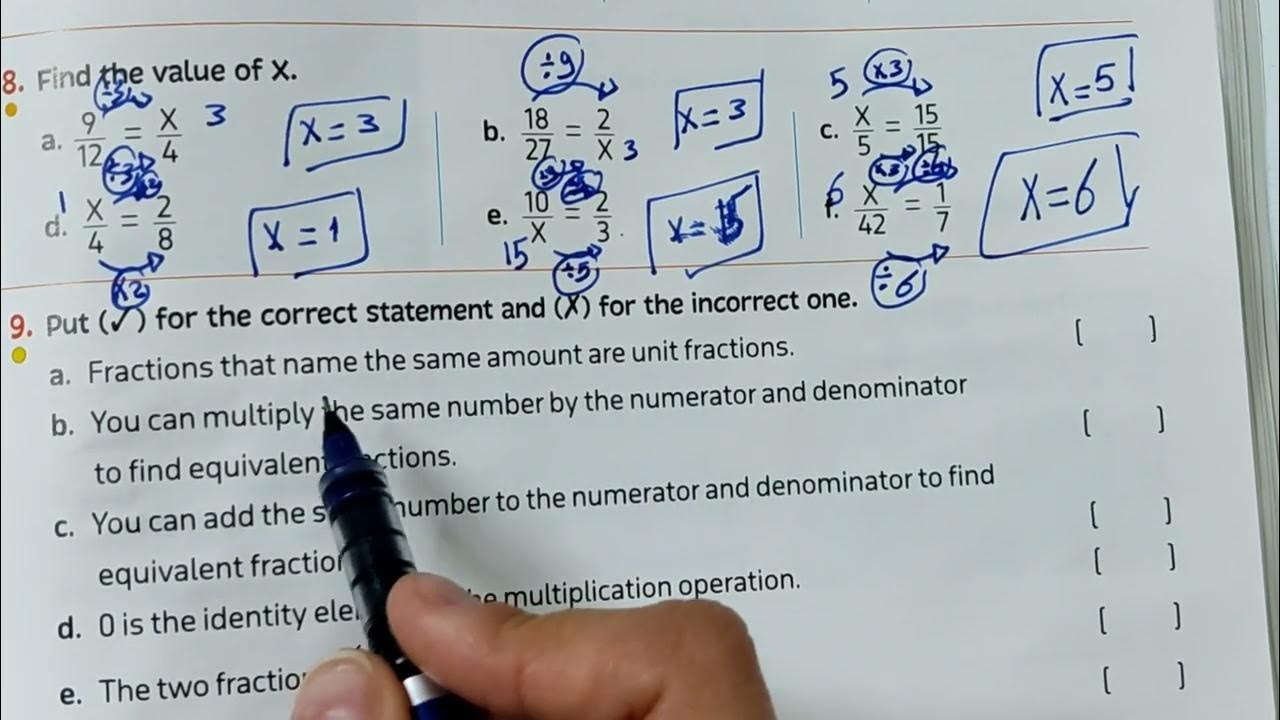 8. Find the value of x.
÷3
÷9
×3
a. 9/12 = X/4 3
X = 3
b. 18/27 = 2/X 3
X = 3
5 c. X/5 = 15/15
X = 5
÷3
×3
1 d. X/4 = 2/8
X = 1
e. 10/X = 2/3
15
X =
6 f. X/42 = 1/7
X = 6
×2
÷5
÷6
9. Put (✓) for the correct statement and (X) for the incorrect one.
a. Fractions that name the same amount are unit fractions. [ ]
b. You can multiply the same number by the numerator and denominator
to find equivalent [ ]
c. You can add the number to the numerator and denominator to find
equivalent [ ]
d. 0 is the identity multiplication operation. [ ]
e. The two [ ]
[ ]